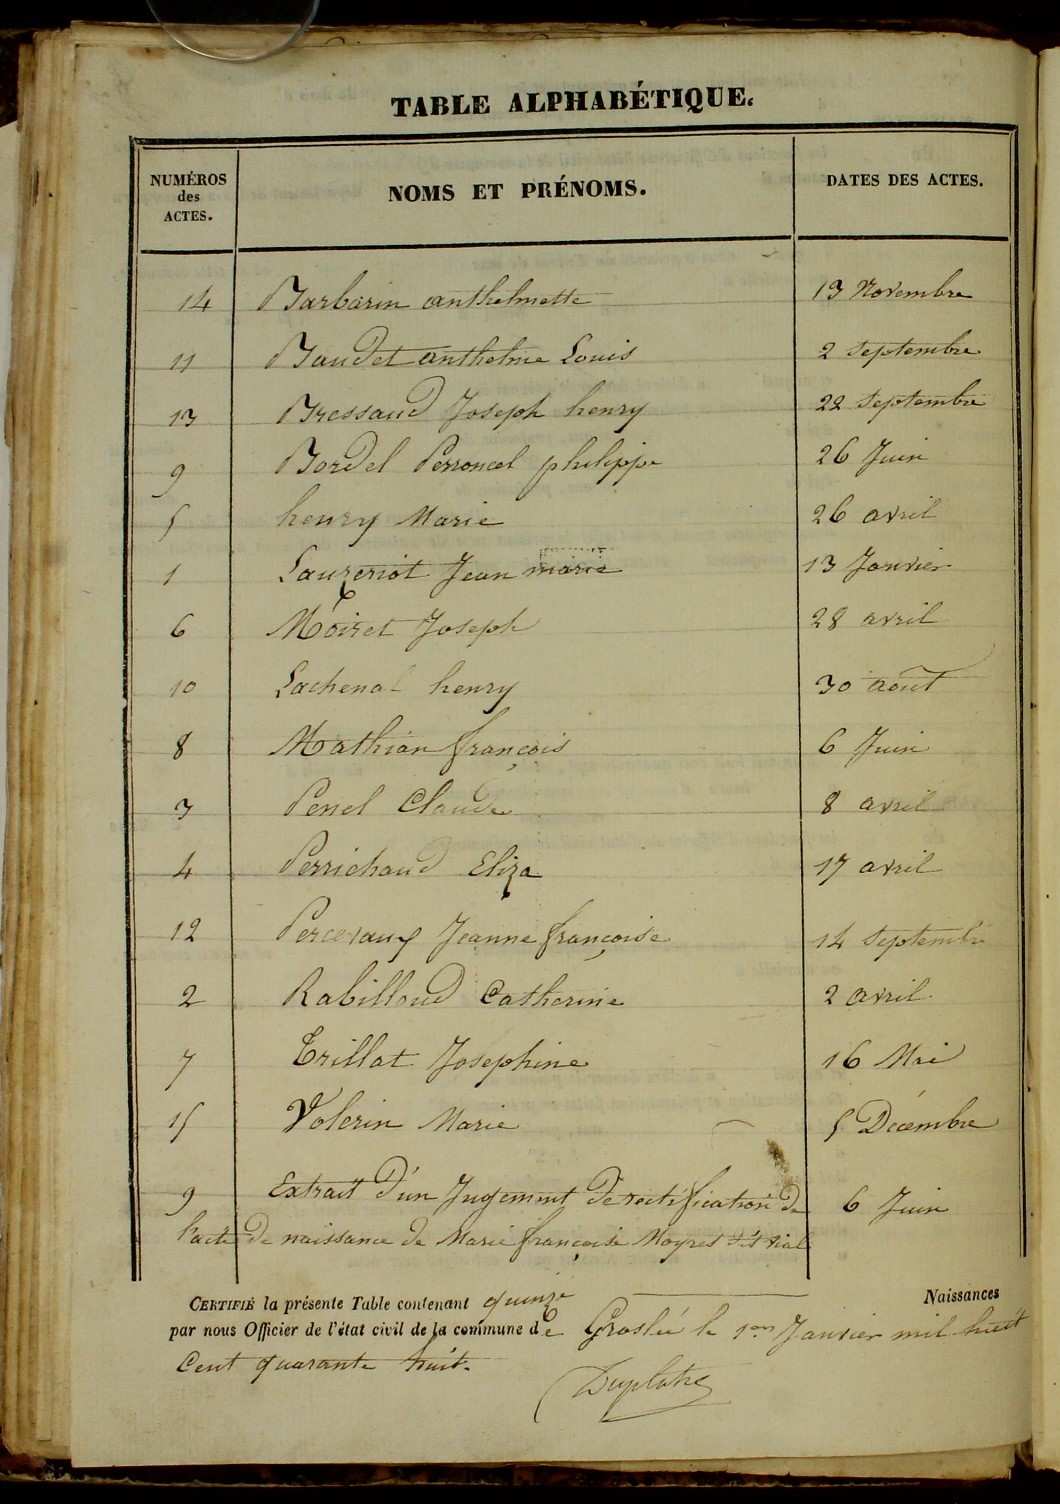 TABLE ALPHABÉTIQUE.
NUMÉROS des ACTES. NOMS ET PRÉNOMS. DATES DES ACTES.
14 Barbarin anthelmette 13 Novembre
11 Baudet anthelme Louis 2 Septembre
13 Bressaud Joseph henry 22 Septembre
9 Bordel Perroncel philippe 26 Juin
5 henry Marie 26 avril
1 Jean marie 13 Janvier
6 Moiret Joseph 28 avril
10 Lachenal henry 30 août
8 Mathian françois 6 Juin
3 Penel Claude 8 avril
4 Perrichaud Eliza 17 avril
12 Percevaux Jeanne françoise 14 Septembre
2 Rabilloud Catherine 2 avril
7 Trillat Josephine 16 Mai
15 Volerin Marie 5 Décembre
9 Extrait d'un Jugement de rectification de 6 Juin
l'acte de naissance de Marie françoise Moyret
CERTIFIÉ la présente Table contenant quinze Naissances
par nous Officier de l'état civil de la commune de Groslée le 1er Janvier mil huit
Cent quarante huit.